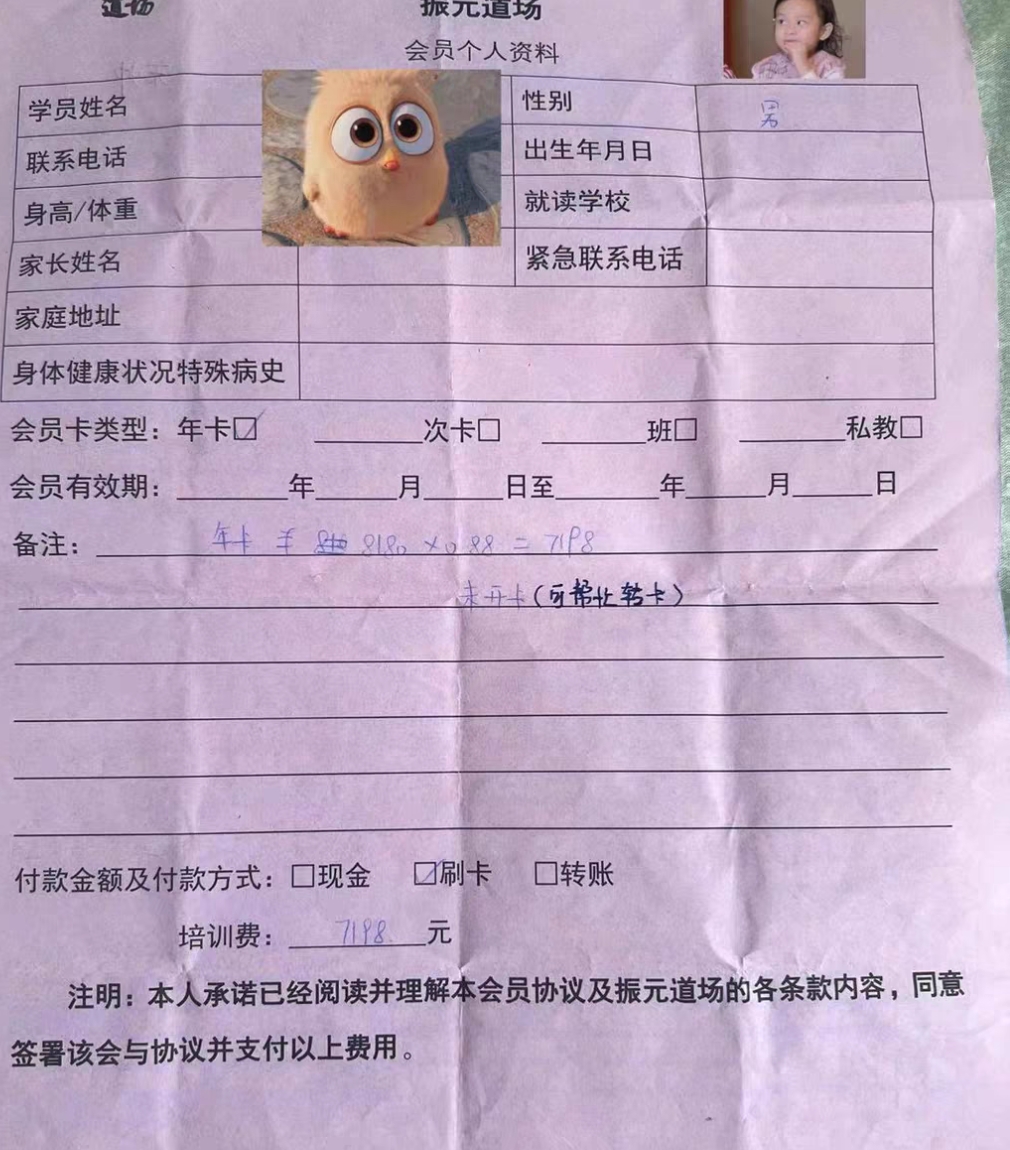 道场 振元道场
会员个人资料
学员姓名 性别 男
联系电话 出生年月日
身高/体重 就读学校
家长姓名 紧急联系电话
家庭地址
身体健康状况特殊病史
会员卡类型：年卡☑ ______次卡□ ______班□ ______私教□
会员有效期：______年______月______日至______年______月______日
备注：年卡 羊 8180×0.88=7198
未开卡（可帮忙转卡）
付款金额及付款方式：□现金 ☑刷卡 □转账
培训费：7198.元
注明：本人承诺已经阅读并理解本会员协议及振元道场的各条款内容，同意
签署该会与协议并支付以上费用。